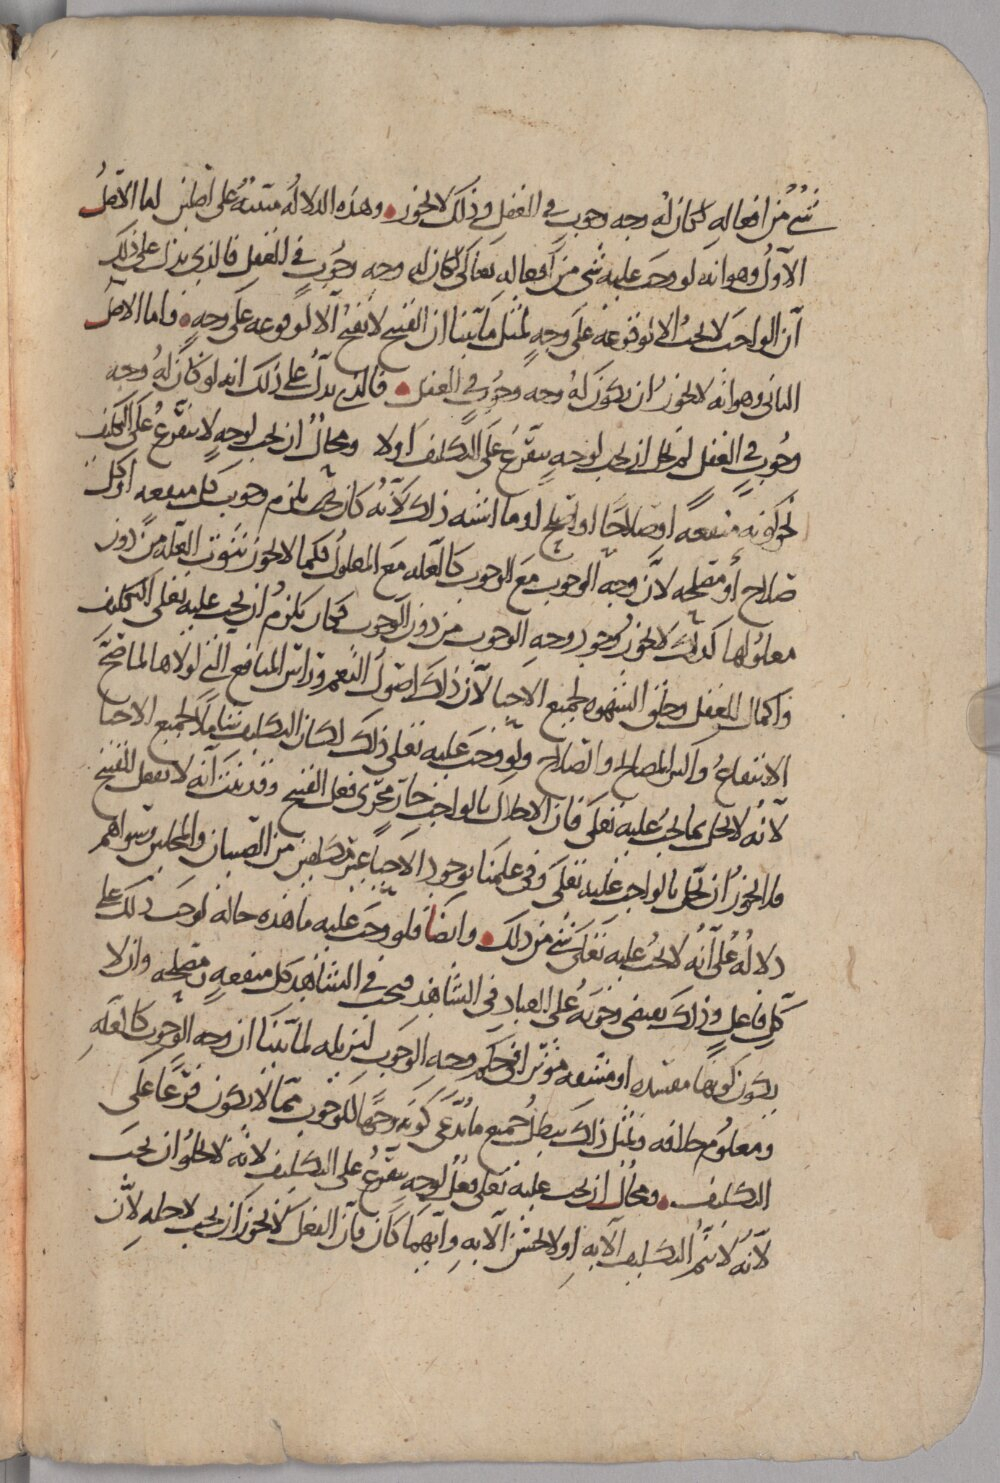 شيء من افعاله لكان له وجه وجوب في العقل وذلك لا يجوز • وهذه الدلالة مبنية على اصلين اما الاصل
الاول وهو انه لو وجب عليه شي من افعاله تعالى لكان له وجه وجوب في العقل فالذي يدل على ذلك
ان الواجب لا يجب الا لوقوعه على وجه لمثل ما بينا ان القبيح لا يقبح الا لوقوعه على وجه • واما الاصل
الثاني وهو انه لا يجوز ان يكون له وجه وجوب في العقل • فالذي يدل على ذلك انه لو كان له وجه
وجوب في العقل لم يخل ان يجب لوجه يتفرع على التكليف اولا ومحال ان يجب لوجه لا يتفرع على التكليف
نحو كونه منفعة او صلاحا او اصلح او ما اشبه ذلك لانه كان يلزم وجوب كل منفعة او كل
صلاح او مصلحة لان وجه الوجوب مع الوجوب كالعلة مع المعلول فكما لا يجوز ثبوت العلة من دون
معلولها كذلك لا يجوز وجود وجه الوجوب من دون الوجوب فكان يلزم ان يجب عليه تعالى التكليف
واكمال العقل وخلق الشهوة لجميع الاحيا لان ذلك اصول النعم وراس المنافع التي لولاها لما صح
الانتفاع واس المصالح والصلاح ولو وجب عليه تعالى ذلك لكان التكليف شاملا لجميع الاحيا
لانه لا يخل بما يجب عليه تعالى فان الاخلال بالواجب جار مجرى فعل القبيح وقد بينا انه لا يفعل القبيح
فلا يجوز ان يخل بالواجب عليه تعالى وفي علمنا بوجود الاحيا غير مكلفين من الصبيان والمجانين وسواهم
دلالة على انه لا يجب عليه تعالى شي من ذلك • وايضا فلو وجب عليه ما هذه حاله لوجب ذلك على
كل فاعل وذلك يقتضي وجوبه على العباد في الشاهد فيجب في الشاهد كل منفعة ومصلحة وان لا
يكون كونها مفسدة او مشقة مؤثرا في حكم وجه الوجوب لتزيله لما بينا ان وجه الوجوب كالعلة
ومعلوم خلافه وبمثل ذلك يبطل جميع ما يدعى كونه وجها للوجوب مما لا يكون فرعا على
التكليف • ومحال ان يجب عليه تعالى فعل لوجه يتفرع على التكليف لانه لا يخلو ان يجب
لانه لا يتم التكليف الا به او لا يحسن الا به وايهما كان فان الفعل لا يجوز ان يجب لاجله لان